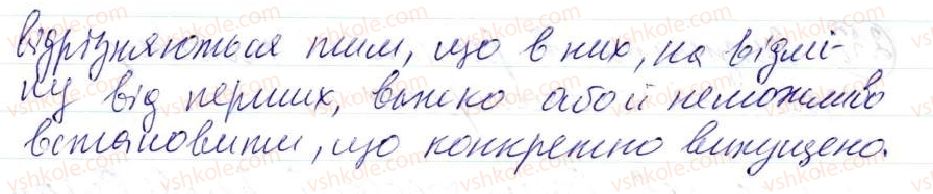 відрізняються тим, що в них, на відмі-
ну від перших, важко або й неможливо
встановити, що конкретно випущено.